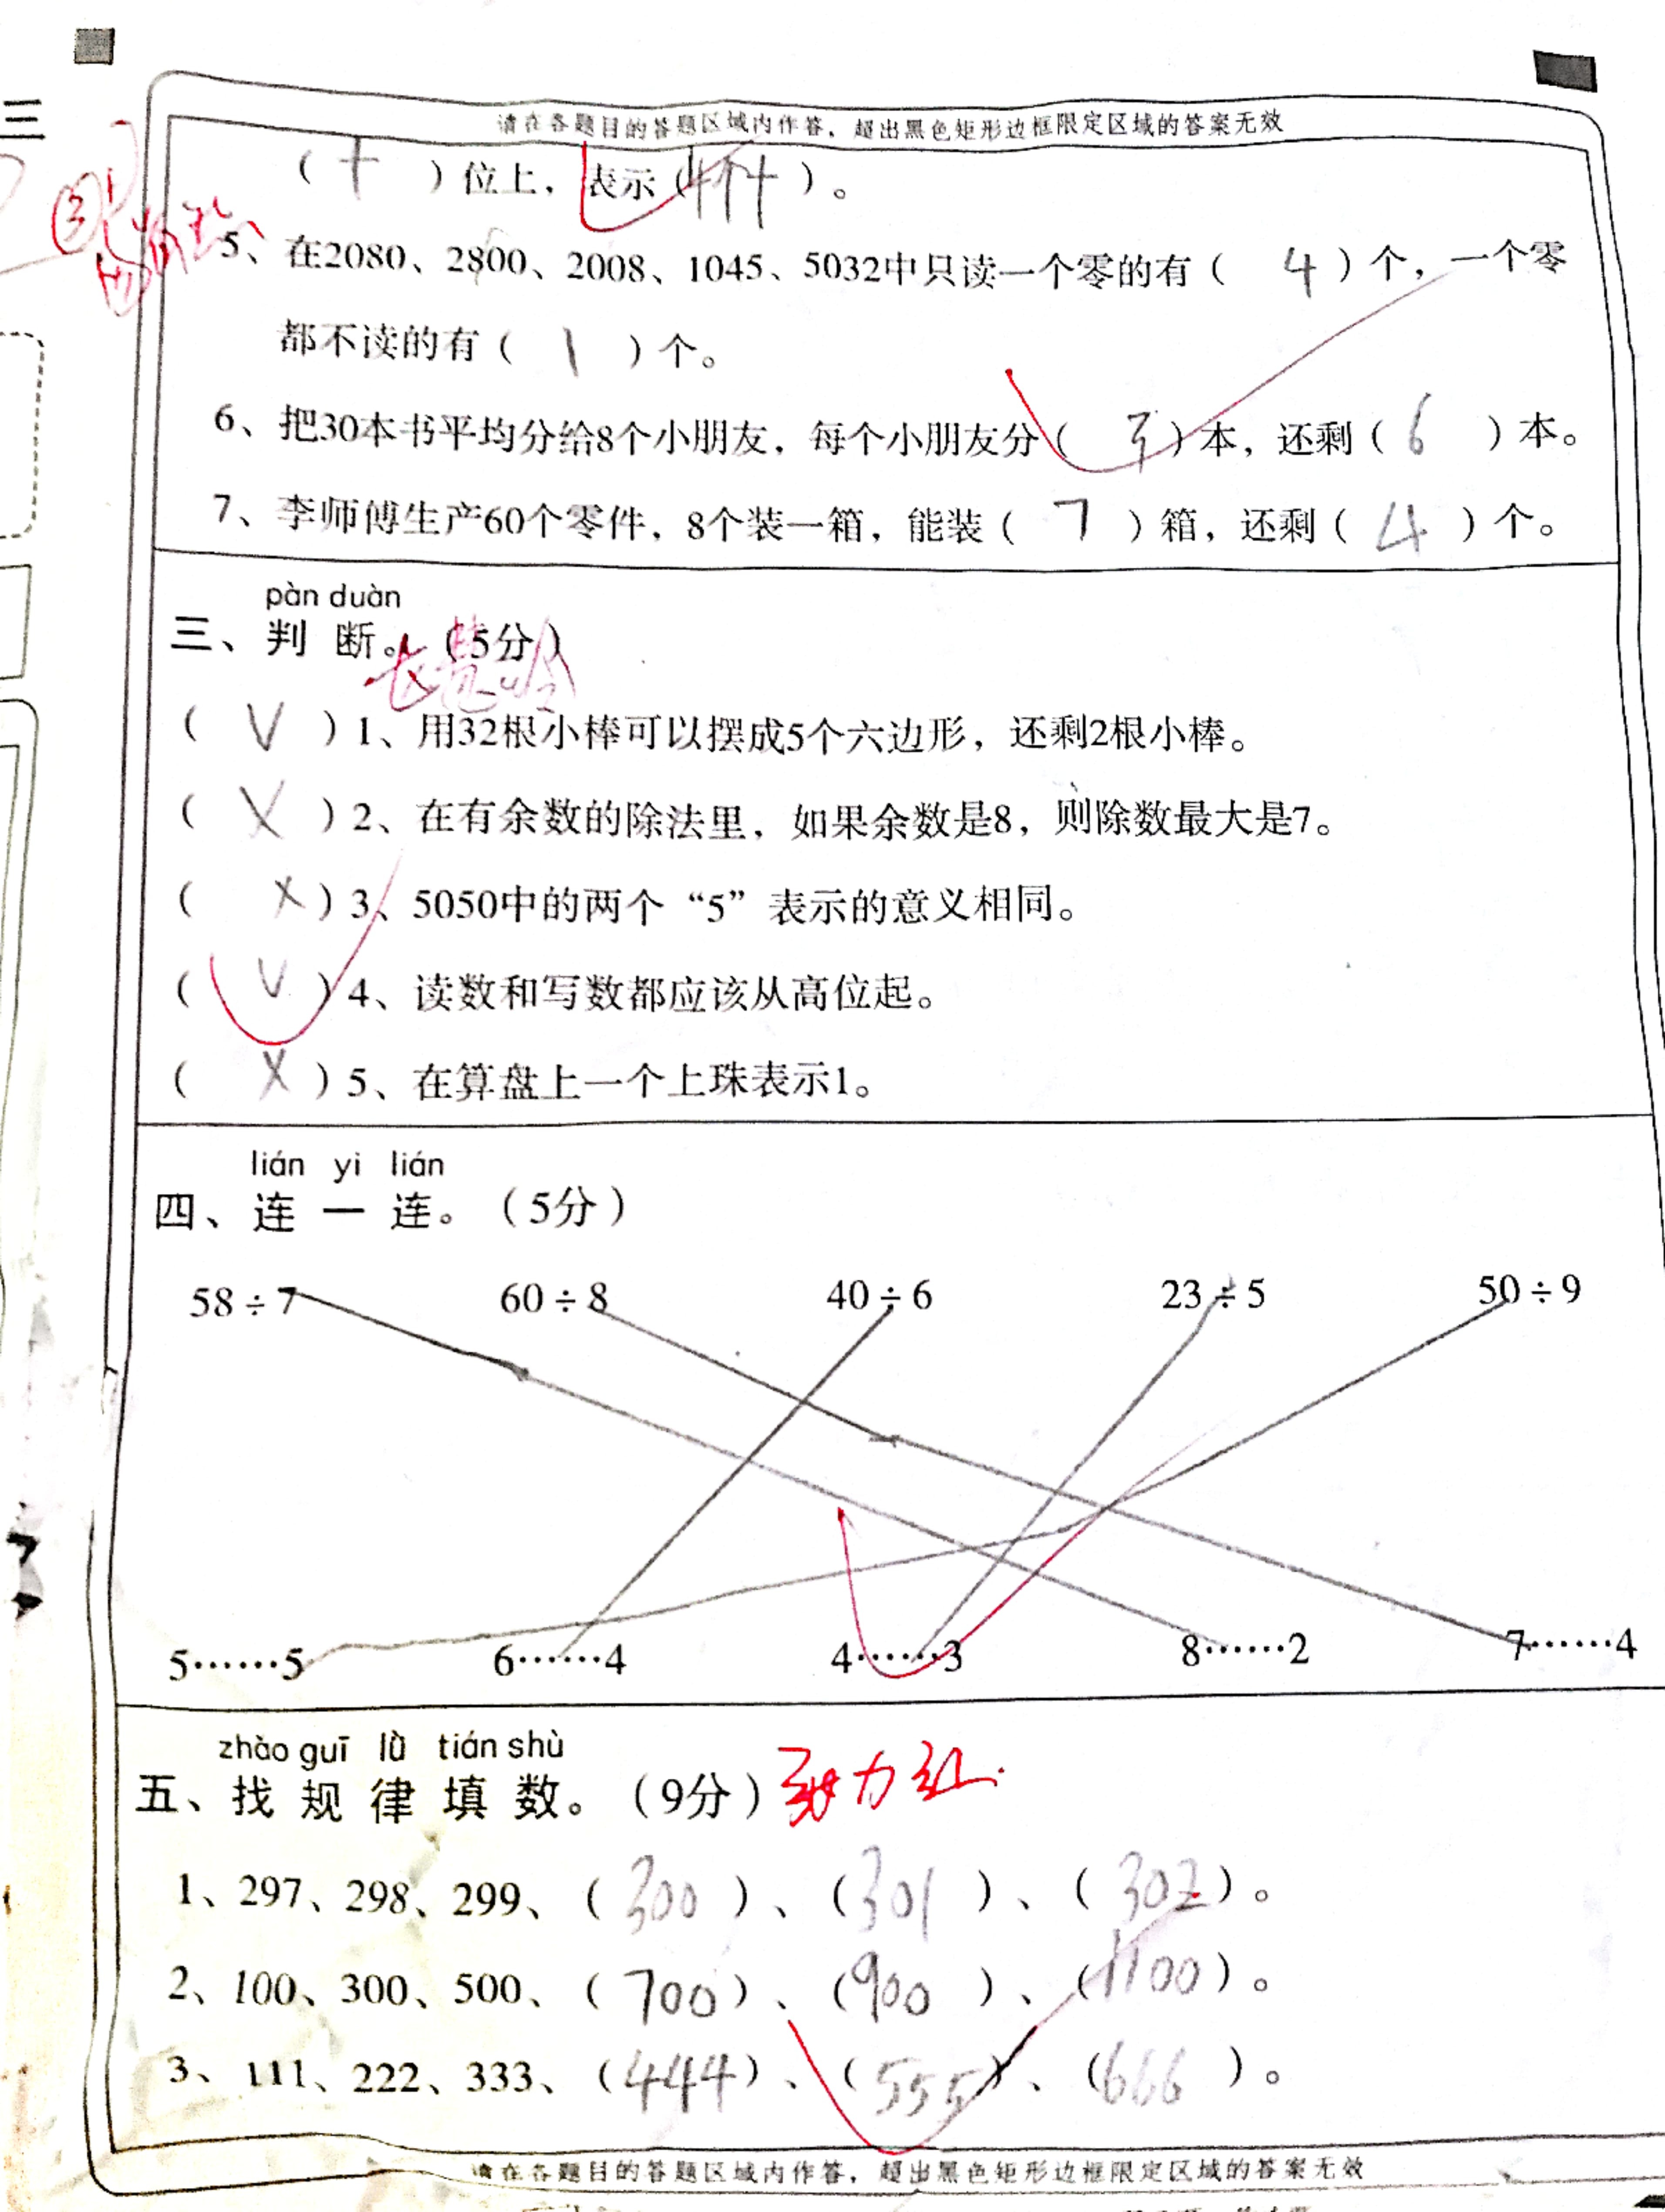 三
请在各题目的答题区域内作答，超出黑色矩形边框限定区域的答案无效
（ 十 ）位上，表示（4个十）。
5、在2080、2800、2008、1045、5032中只读一个零的有（ 4 ）个，一个零
都不读的有（ 1 ）个。
6、把30本书平均分给8个小朋友，每个小朋友分（ 3 ）本，还剩（ 6 ）本。
7、李师傅生产60个零件，8个装一箱，能装（ 7 ）箱，还剩（ 4 ）个。
pàn duàn
三、判 断。（5分）
（ √ ）1、用32根小棒可以摆成5个六边形，还剩2根小棒。
（ × ）2、在有余数的除法里，如果余数是8，则除数最大是7。
（ × ）3、5050中的两个“5”表示的意义相同。
（ √ ）4、读数和写数都应该从高位起。
（ × ）5、在算盘上一个上珠表示1。
lián yi lián
四、连 一 连。（5分）
58÷7 60÷8 40÷6 23÷5 50÷9
5……5 6……4 4……3 8……2 7……4
zhǎo guī lǜ tián shù
五、找 规 律 填 数。（9分）
1、297、298、299、（ 300 ）、（ 301 ）、（ 302 ）。
2、100、300、500、（ 700 ）、（ 900 ）、（ 1100 ）。
3、111、222、333、（ 444 ）、（ 555 ）、（ 666 ）。
请在各题目的答题区域内作答，超出黑色矩形边框限定区域的答案无效